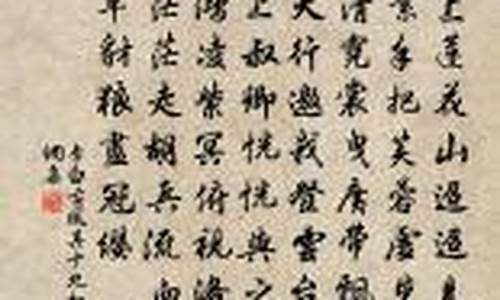 上蓮花山迢迢見
素手把芙蓉虛步
清霓裳曳廣帶飄
天行邀我登雲台
叔卿恍恍與之
鴻凌紫冥俯視洛
茫茫走胡兵流血
草豺狼盡冠纓
李白古風其十九